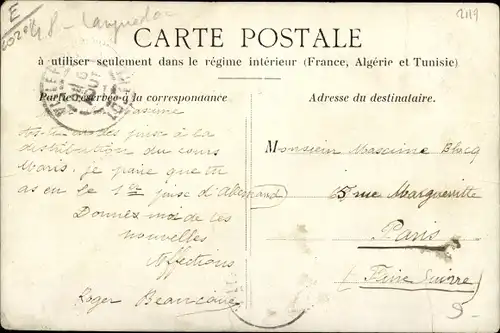 E
48 - Languedoc
2119
CARTE POSTALE
à utiliser seulement dans le régime intérieur (France, Algérie et Tunisie)
Partie réservée à la correspondance
Adresse du destinataire.
Maxime
As-tu eu des prix à la
distribution du cours
Maris. je parie que tu
as eu le 1er prix d'Allemand
Donnez moi de ces
nouvelles
Affections
Roger
Monsieur Maxime Bloch
15 rue Margueritte
Paris
(Faire suivre)